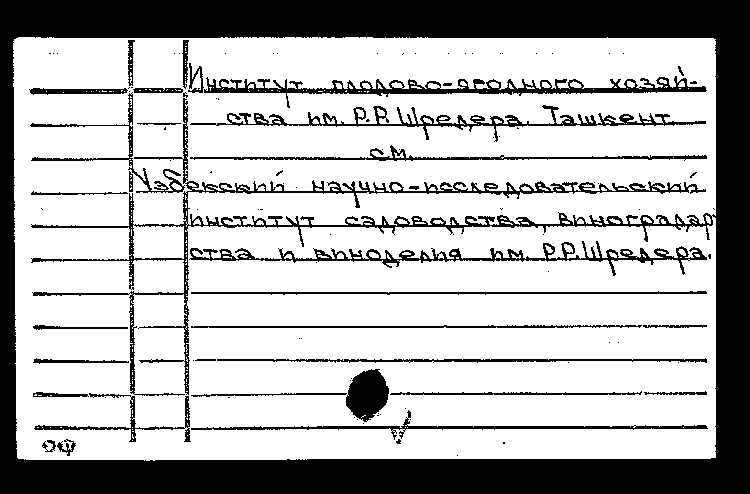 Институт плодово-ягодного хозяй-
ства им. Р.Р. Шредера. Ташкент
см.
Узбекский научно-исследовательский
институт садоводства, виноградар
ства и виноделия им. Р.Р.Шредера.
ОФ